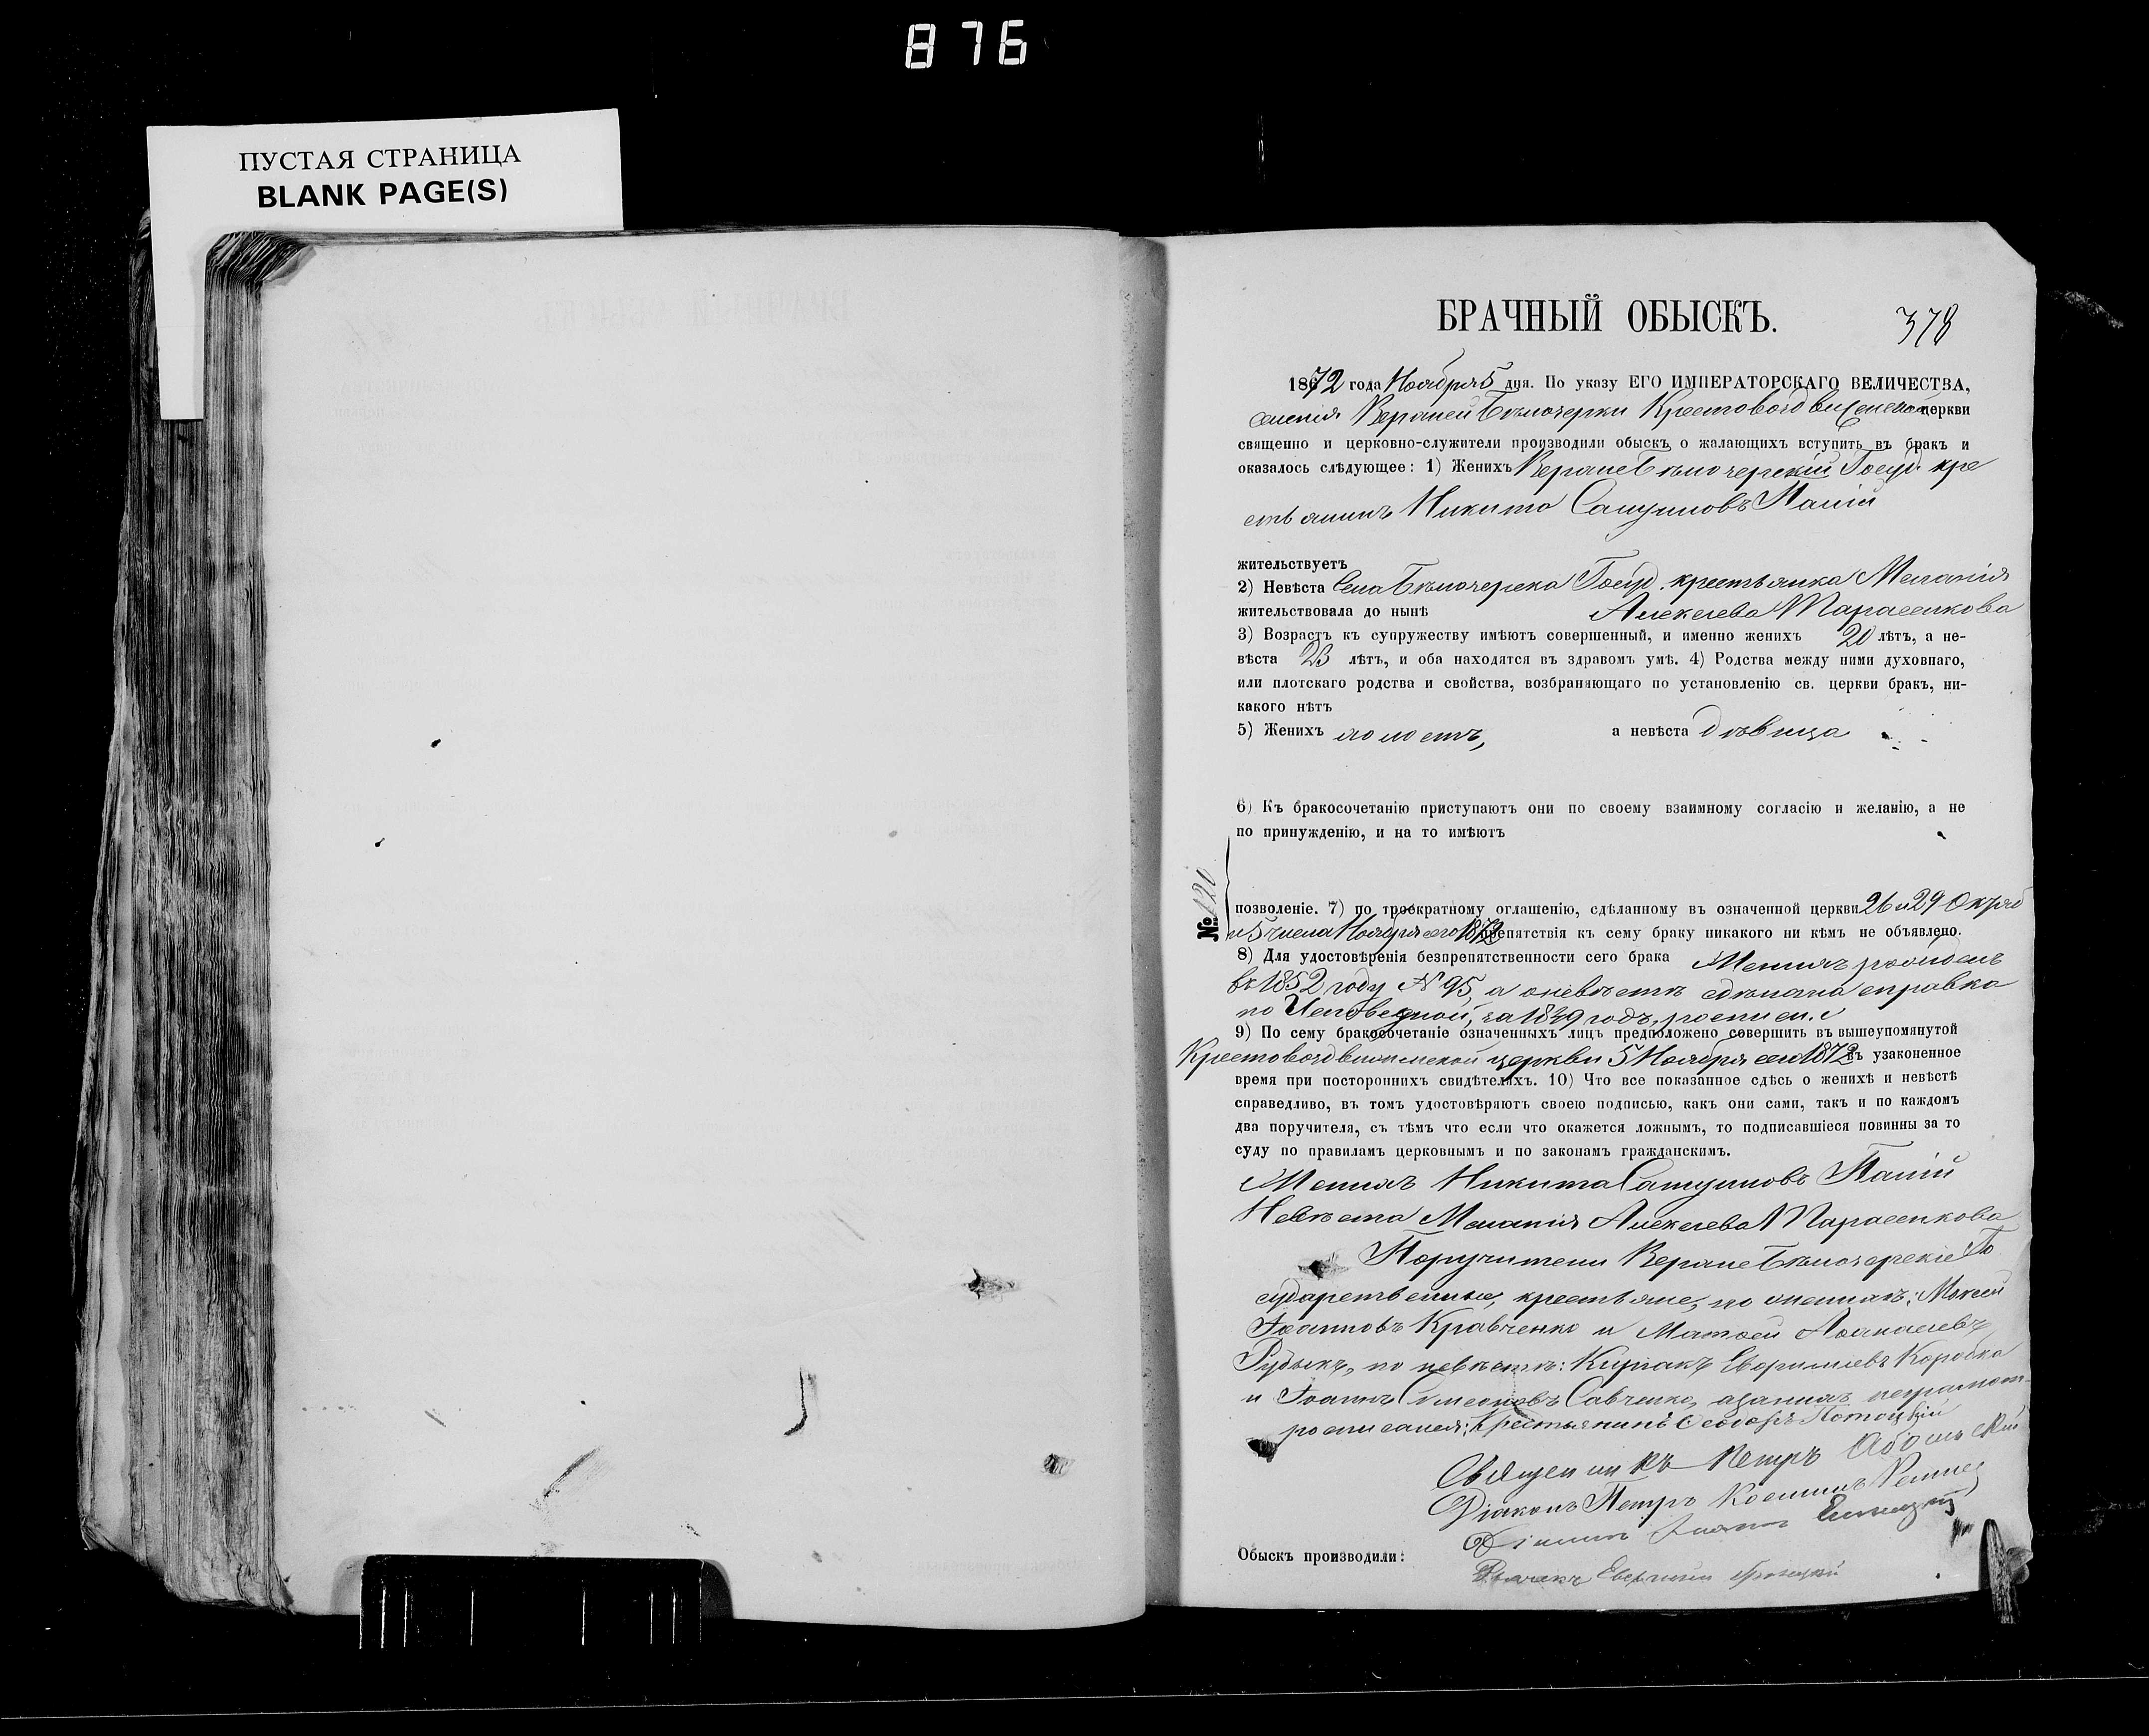 876
ПУСТАЯ СТРАНИЦА
BLANK PAGE(S)
БРАЧНЫЙ ОБЫСКЪ.
378
1872 года Ноября 5 дня. По указу ЕГО ИМПЕРАТОРСКАГО ВЕЛИЧЕСТВА,
селенія Верхней Бѣлозерки Крестовоздвиженской церкви
священно и церковно-служители производили обыскъ о жалающихъ вступить въ бракъ и
оказалось слѣдующее: 1) Женихъ Верхне Бѣлозерскій Госуд. кре
стьянинъ Никита Сатуриновъ Палій
жительствуетъ
2) Невѣста Села Бѣлозерка Госуд. крестьянка Меланія
жительствовала до нынѣ Алексѣева Тарасенкова
3) Возрастъ къ супружеству имѣютъ совершенный, и именно женихъ 20 лѣтъ, а не-
вѣста 23 лѣтъ, и оба находятся въ здравомъ умѣ. 4) Родства между ними духовнаго,
или плотскаго родства и свойства, возбраняющаго по установленію св. церкви бракъ, ни-
какого нѣтъ
5) Женихъ холостъ, а невѣста дѣвица
6) Къ бракосочетанію приступаютъ они по своему взаимному согласію и желанію, а не
по принужденію, и на то имѣютъ
№ 120
позволеніе. 7) по троекратному оглашенію, сдѣланному въ означенной церкви 26 и 29 Октяб
и 5 числа Ноября сего 1872 препятствія къ сему браку никакого ни кѣмъ не объявлено.
8) Для удостовѣренія безпрепятственности сего брака Женихъ рожденъ
въ 1852 году № 95, а о невѣстѣ сдѣлана справка
по Исповедной, за 1849 годъ, росписи
9) По сему бракосочетаніе означенныхъ лицъ предположено совершить въ вышеупомянутой
Крестовоздвиженской церкви 5 Ноября сего 1872 въ узаконенное
время при постороннихъ свидѣтеляхъ. 10) Что все показанное сдѣсь о женихѣ и невѣстѣ
справедливо, въ томъ удостовѣряютъ своею подписью, какъ они сами, такъ и по каждомъ
два поручителя, съ тѣмъ что если что окажется ложнымъ, то подписавшіеся повинны за то
суду по правиламъ церковнымъ и по законамъ гражданскимъ.
Женихъ Никита Сатуриновъ Палій
Невѣста Меланія Алексѣева Тарасенкова
Поручители Верхне Бѣлозерскіе Го
сударственные, крестьяне, по женихѣ: Моисей
Іоанновъ Кравченко и Матѳей Аѳанасіевъ
Рудыкъ, по невѣстѣ: Киріакъ Евфиміевъ Коробка
и Іоаннъ Симеоновъ Савченко, а за нихъ неграмот-
росписался: Крестьянинъ Ѳеодоръ Потоцкій
Священникъ Петръ
Діаконъ Петръ
Обыскъ производили: